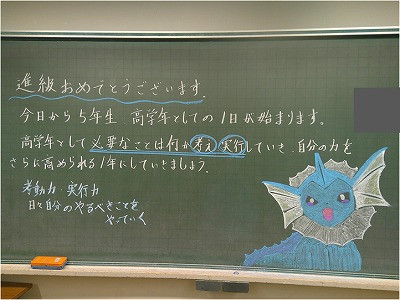 進級おめでとうございます。
今日から5年生 高学年としての1日が始まります。
高学年として必要なことは何か考え実行していき、自分の力を
さらに高められる1年にしていきましょう。
考動力・実行力
日々自分のやるべきことを
やっていく